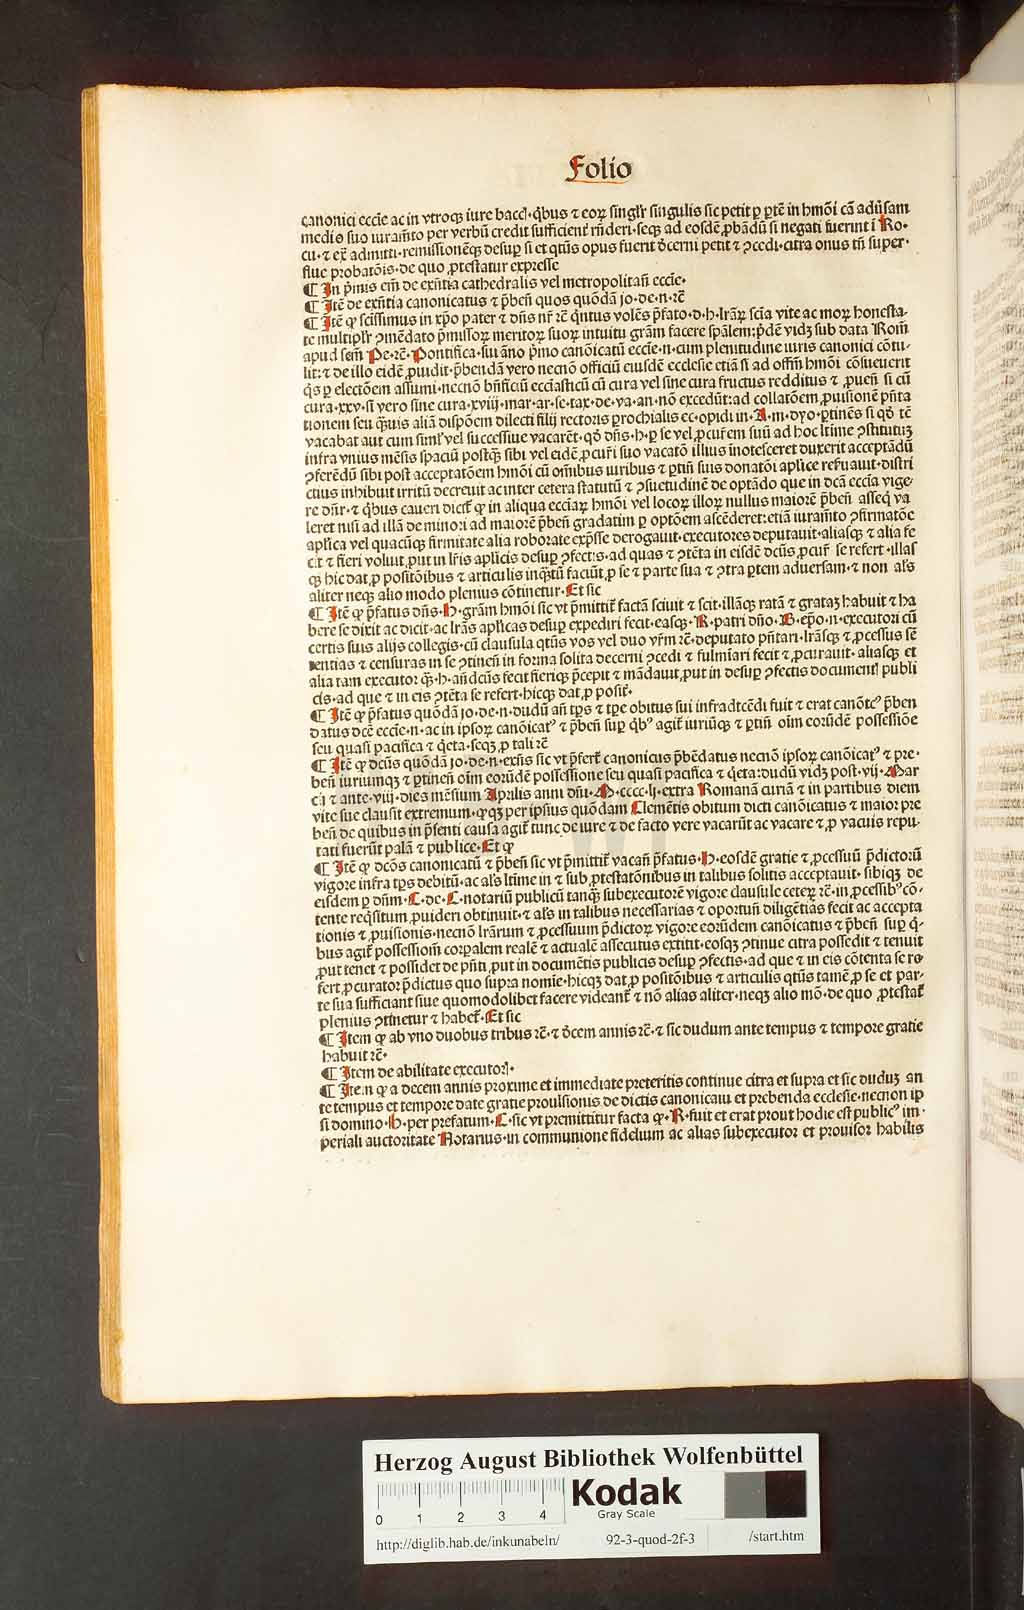 Folio
canonici eccīe ac in vtroqꝫ iure baccꝭ·q̇bus ⁊ eoꝝ singlʳ singulis sic petit ꝑ ꝑtē in hmōi cā adūsam
medio suo iuramēto per verbū credit sufficient̄ rn̄deri·seqꝫ ad eosdē ꝓbādū si negati fuerint ī Ro-
cu·⁊ ex̄ admitti·remissionēqꝫ desuꝑ si et qtūs opus fuerit ꝺcerni petit ⁊ ꝯcedi·citra onus tn̄ super-
flue probatōis·de quo ꝓtestatur expresse
¶ In p̄mis em̄ de exn̄tia cathedralis vel metropolitan̄ eccīe·
¶ Itē de exn̄tia canonicatus ⁊ p̄ben̄ quos quōdā jo·de·n·rē
¶ Itē ꝙ scīssimus in xp̄o pater ⁊ dn̄s nr̄ rē q̇ntus volēs p̄fato·d·h·lr̄aꝝ scīa vite ac moꝝ honesta-
te multiplʳ ꝯmēdato p̄missoꝝ meritoꝝ suoꝝ intuitu grām facere sp̄alem:p̄dē vidꝫ sub data Rom̄
apud sem̄ Pe·rē·Pontifica·sui āno p̄mo canōicatū eccīe·n·cum plenitudine iuris canonici cōtu-
lit:⁊ de illo eidē ꝓuidit·p̄bendā vero necnō officiū eiusdē ecclesie etiā si ad offm̄ hmōi cōsueuerit
q̇s ꝑ electōem assumi·necnō bn̄ficiū eccīasticū cū cura vel sine cura fructus redditus ⁊ ꝓuen̄ si cū
cura·xxv·si vero sine cura·xviij·mar·ar·se·tax·de·va·an·nō excedūt:ad collatōem ꝓuisionē p̄nta
tionem seu q̄uis aliā dispōem dilecti filij rectoris prochialis ec·opidi in·A·m·dyo·ꝑtinēs si qꝺ tē
vacabat aut cum simlʳ vel successiue vacarēt·qꝺ dn̄s·h·ꝑ se vel ꝓcur̄em suū ad hoc ltīme ꝯstitutuꝫ
infra vnius mēsis spaciū postq̄ꝫ sibi vel eidē ꝓcur̄i suo vacatō illius īnotesceret duxerit acceptādū
ꝯferēdū sibi post acceptatōem hmōi cū om̄ibus iuribus ⁊ ꝑtin̄ suis donatōi aplīce reẜuauit·distri
ctius inhibuit irritū decreuit ac inter cetera statutū ⁊ ꝯsuetudinē de optādo que in dcā eccīa vige-
re dn̄r·⁊ q̇bus caueri dicit̄ ꝙ in aliqua eccīaꝝ hmōi vel locoꝝ illoꝝ nullus maiorē p̄ben̄ asseq̄ va
leret nisi ad illā de minori ad maiorē p̄ben̄ gradatim ꝑ optōem ascēderet:etiā iuramēto ꝯfirmatōe
aplīca vel quacūqꝫ firmitate alia roborate expr̄sse derogauit·executores deputauit·aliasqꝫ ⁊ alia fe
cit ⁊ fieri voluit ꝓut in lr̄is aplīcis desuꝑ ꝯfectꝭ·ad quas ⁊ ꝯtēta in eisdē dc̄us ꝓcur̄ se refert·illas
qꝫ hic dat ꝓ positōibus ⁊ articulis inq̄tū faciūt ꝓ se ⁊ parte sua ⁊ ꝯtra ꝑtem aduersam·⁊ non aĺs
aliter neqꝫ alio modo plenius cōtinetur·Et sic
¶ Itē ꝙ p̄fatus dn̄s·H·grām hmōi sic vt p̄mittit̄ factā sciuit ⁊ scit·illāqꝫ ratā ⁊ grataꝫ habuit ⁊ ha
bere se dixit ac dicit·ac lr̄as aplīcas desuꝑ expediri fecit·easqꝫ·R·patri dn̄o·B·ep̄o·n·executori cū
certis suis alijs collegis·cū clausula qtūs vos vel duo vr̄m rē·deputato pn̄tari·lr̄asqꝫ ⁊ ꝓcessus sē
tentias ⁊ censuras in se ꝯtinen̄ in forma solita decerni ꝯcedi ⁊ fulmīari fecit ⁊ ꝓcurauit·aliasqꝫ et
alia tam executor q̄ꝫ·h·an̄dcūs fecit fieriqꝫ p̄cepit ⁊ mādauit ꝓut in desuꝑ ꝯfectis documentꝭ publi
cis·ad que ⁊ in eis ꝯtēta se refert·hicqꝫ dat ꝓ posit̄·
¶ Itē ꝙ p̄fatus quōdā jo·de·n·dudū an̄ tp̄s ⁊ tp̄e obitus sui infradtcēdi fuit ⁊ erat canōicꝰ p̄ben
datus dcē eccīe·n·ac in ipsoꝝ canōicatꝰ ⁊ p̄ben̄ suꝑ q̇bꝰ agit̄ iuriūqꝫ ⁊ ꝑtin̄ oīm eorūdē possessiōe
seu quasi pacifica ⁊ q̇eta·seqꝫ ꝓ tali rē
¶ Itē ꝙ dc̄us quōdā jo·de·n·exn̄s sic vt p̄fert̄ canonicus p̄bēdatus necnō ipsoꝝ canōicatꝰ ⁊ pre-
ben̄ iuriumqꝫ ⁊ ꝑtinen̄ oīm eorūdē possessione seu quasi pacifica ⁊ q̇eta:dudū vidꝫ post·vij·Mar
cij ⁊ ante·viij·dies mēsium Aprilis anni dn̄i·M·cccc·lj·extra Romanā curiā ⁊ in partibus diem
vite sue clausit extremum·ꝙqꝫ per ipsius quōdam Clemētis obitum dicti canōicatus ⁊ maioꝝ pre
ben̄ de quibus in p̄senti causa agit̄ tunc de iure ⁊ de facto vere vacarūt ac vacare ⁊ ꝓ vacuis repu-
tati fuerūt palā ⁊ publice·Et ꝙ
¶ Itē ꝙ dcōs canonicatū ⁊ p̄ben̄ sic vt p̄mittit̄ vacan̄ p̄fatus·H·eosdē gratie ⁊ ꝓcessuū p̄dictorū
vigore infra tp̄s debitū·ac aĺs ltīme in ⁊ sub ꝓtestatōnibus in talibus solitis acceptauit·sibiqꝫ de
eisdem ꝑ dn̄m·C·de·C·notariū publicū tanq̄ꝫ subexecutorē vigore clausule ceteꝝ rē·in ꝓcessibꝰ cō-
tente reqͥsitum ꝓuideri obtinuit·⁊ aĺs in talibus necessarias ⁊ oportun̄ diligētias fecit ac accepta
tionis ⁊ ꝓuisionis·necnō lr̄arum ⁊ ꝓcessuum p̄dictoꝝ vigore eorūdem canōicatus ⁊ p̄ben̄ suꝑ q̇-
bus agit̄ possessionem corꝑalem realē ⁊ actualē assecutus extitit·eosqꝫ ꝯtinue citra possedit ⁊ tenuit
ꝓut tenet ⁊ possidet de pn̄ti ꝓut in documētis publicis desuꝑ ꝯfectis·ad que ⁊ in eis cōtenta se re
fert ꝓcurator p̄dictus quo supra nomie·hicqꝫ dat ꝓ positōibus ⁊ articulis qtūs tamē ꝓ se et par-
te sua sufficiant siue quomodolibet facere videant̄ ⁊ nō alias aliter·neqꝫ alio mō·de quo ꝓtestat̄
plenius ꝯtinetur ⁊ habet̄·Et sic
¶ Item ꝙ ab vno duobus tribus rē·⁊ ꝺcem annis rē·⁊ sic dudum ante tempus ⁊ tempore gratie
habuit rē·
¶ Item de abilitate executorꝭ·
¶ Item ꝙ a decem annis proxime et immediate preteritis continue citra et supra et sic duduꝫ an
te tempus et tempore date gratie prouisionis de dictis canonicatu et prebenda ecclesie·necnon ip
si domino·H·per prefatum·C·sic vt premittitur facta ꝙ·R·fuit et erat prout hodie est publicꝰ im-
periali auctoritate Notarius·in communione fidelium ac alias subexecutor et prouisor habilis
Herzog August Bibliothek Wolfenbüttel
0 1 2 3 4
Kodak
Gray Scale
http://diglib.hab.de/inkunabeln/ 92-3-quod-2f-3 /start.htm